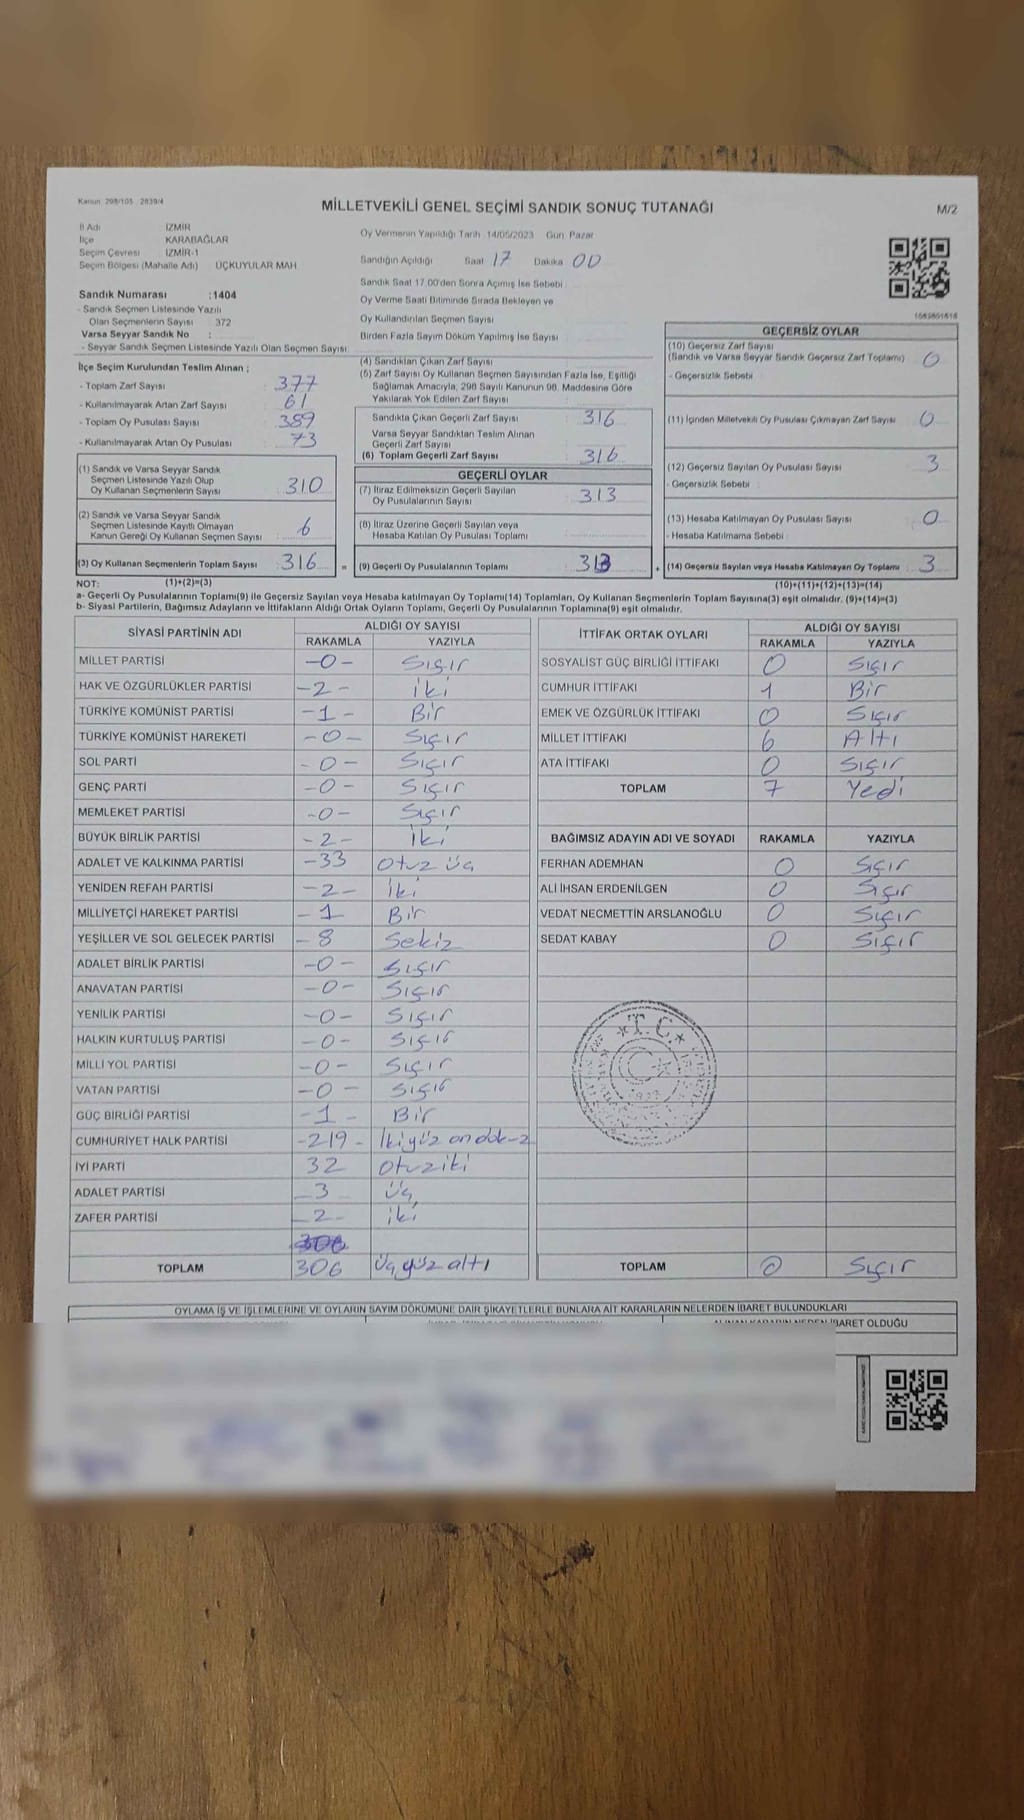 Kanun 298/105 . 2839/4
MİLLETVEKİLİ GENEL SEÇİMİ SANDIK SONUÇ TUTANAĞI
M/2
İl Adı : İZMİR
İlçe : KARABAĞLAR
Seçim Çevresi : İZMİR-1
Seçim Bölgesi (Mahalle Adı) : ÜÇKUYULAR MAH
Sandık Numarası :1404
- Sandık Seçmen Listesinde Yazılı
Olan Seçmenlerin Sayısı : 372
Varsa Seyyar Sandık No :
- Seyyar Sandık Seçmen Listesinde Yazılı Olan Seçmen Sayısı:
Oy Vermenin Yapıldığı Tarih :14/05/2023 Gün: Pazar
Sandığın Açıldığı Saat 17 Dakika 00
Sandık Saat 17.00'den Sonra Açımış İse Sebebi :
Oy Verme Saati Bitiminde Sırada Bekleyen ve
Oy Kullandırılan Seçmen Sayısı
Birden Fazla Sayım Döküm Yapılmış İse Sayısı
İlçe Seçim Kurulundan Teslim Alınan ;
- Toplam Zarf Sayısı : 377
- Kullanılmayarak Artan Zarf Sayısı : 61
- Toplam Oy Pusulası Sayısı : 389
- Kullanılmayarak Artan Oy Pusulası : 73
(1) Sandık ve Varsa Seyyar Sandık
Seçmen Listesinde Yazılı Olup
Oy Kullanan Seçmenlerin Sayısı : 310
(2) Sandık ve Varsa Seyyar Sandık
Seçmen Listesinde Kayıtlı Olmayan
Kanun Gereği Oy Kullanan Seçmen Sayısı : 6
(3) Oy Kullanan Seçmenlerin Toplam Sayısı : 316
(4) Sandıktan Çıkan Zarf Sayısı
(5) Zarf Sayısı Oy Kullanan Seçmen Sayısından Fazla İse, Eşitliği
Sağlamak Amacıyla, 298 Sayılı Kanunun 98. Maddesine Göre
Yakılarak Yok Edilen Zarf Sayısı :
Sandıkta Çıkan Geçerli Zarf Sayısı : 316
Varsa Seyyar Sandıktan Teslim Alınan
Geçerli Zarf Sayısı :
(6) Toplam Geçerli Zarf Sayısı : 316
GEÇERLİ OYLAR
(7) İtiraz Edilmeksizin Geçerli Sayılan
Oy Pusulalarının Sayısı : 313
(8) İtiraz Üzerine Geçerli Sayılan veya
Hesaba Katılan Oy Pusulası Toplamı :
= (9) Geçerli Oy Pusulalarının Toplamı : 313 +
GEÇERSİZ OYLAR
(10) Geçersiz Zarf Sayısı
(Sandık ve Varsa Seyyar Sandık Geçersiz Zarf Toplamı) : 0
- Geçersizlik Sebebi :
(11) İçinden Milletvekili Oy Pusulası Çıkmayan Zarf Sayısı : 0
(12) Geçersiz Sayılan Oy Pusulası Sayısı : 3
- Geçersizlik Sebebi :
(13) Hesaba Katılmayan Oy Pusulası Sayısı : 0
- Hesaba Katılmama Sebebi :
(14) Geçersiz Sayılan veya Hesaba Katılmayan Oy Toplamı : 3
NOT: (1)+(2)=(3) (10)+(11)+(12)+(13)=(14)
a- Geçerli Oy Pusulalarının Toplamı(9) ile Geçersiz Sayılan veya Hesaba katılmayan Oy Toplamı(14) Toplamları, Oy Kullanan Seçmenlerin Toplam Sayısına(3) eşit olmalıdır. (9)+(14)=(3)
b- Siyasi Partilerin, Bağımsız Adayların ve İttifakların Aldığı Ortak Oyların Toplamı, Geçerli Oy Pusulalarının Toplamına(9) eşit olmalıdır.
SİYASİ PARTİNİN ADI ALDIĞI OY SAYISI
RAKAMLA YAZIYLA
MİLLET PARTİSİ -0- Sıçır
HAK VE ÖZGÜRLÜKLER PARTİSİ -2- iki
TÜRKİYE KOMÜNİST PARTİSİ -1- Bir
TÜRKİYE KOMÜNİST HAREKETİ -0- Sıçır
SOL PARTİ -0- Sıçır
GENÇ PARTİ -0- Sıçır
MEMLEKET PARTİSİ -0- Sıçır
BÜYÜK BİRLİK PARTİSİ -2- iki
ADALET VE KALKINMA PARTİSİ -33 otuz üç
YENİDEN REFAH PARTİSİ -2- iki
MİLLİYETÇİ HAREKET PARTİSİ -1 Bir
YEŞİLLER VE SOL GELECEK PARTİSİ -8 Sekiz
ADALET BİRLİK PARTİSİ -0- Sıçır
ANAVATAN PARTİSİ -0- Sıçır
YENİLİK PARTİSİ -0- Sıçır
HALKIN KURTULUŞ PARTİSİ -0- Sıçır
MİLLİ YOL PARTİSİ -0- Sıçır
VATAN PARTİSİ -0- Sıçır
GÜÇ BİRLİĞİ PARTİSİ -1- Bir
CUMHURİYET HALK PARTİSİ -219- İkiyüz on dok-z
İYİ PARTİ 32 otuziki
ADALET PARTİSİ -3 üç
ZAFER PARTİSİ -2- iki
306
TOPLAM 306 üçyüz altı
İTTİFAK ORTAK OYLARI ALDIĞI OY SAYISI
RAKAMLA YAZIYLA
SOSYALİST GÜÇ BİRLİĞİ İTTİFAKI 0 Sıçır
CUMHUR İTTİFAKI 1 Bir
EMEK VE ÖZGÜRLÜK İTTİFAKI 0 Sıçır
MİLLET İTTİFAKI 6 Altı
ATA İTTİFAKI 0 Sıçır
TOPLAM 7 Yedi
BAĞIMSIZ ADAYIN ADI VE SOYADI RAKAMLA YAZIYLA
FERHAN ADEMHAN 0 Sıçır
ALİ İHSAN ERDENİLGEN 0 Sıçır
VEDAT NECMETTİN ARSLANOĞLU 0 Sıçır
SEDAT KABAY 0 Sıçır
T.C.
TOPLAM 0 Sıçır
OYLAMA İŞ VE İŞLEMLERİNE VE OYLARIN SAYIM DÖKÜMÜNE DAİR ŞİKAYETLERLE BUNLARA AİT KARARLARIN NELERDEN İBARET BULUNDUKLARI
ALINAN KARARIN NEDEN İBARET OLDUĞU